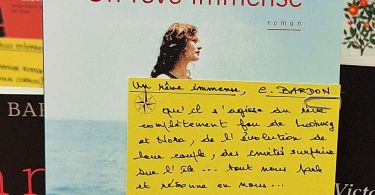 Un rêve immense
roman
Un rêve immense, C. BARDON
qu'il s'agisse du rêve
complètement fou de Ludwig
et Nora, de l'évolution de
leur couple, des invités surprise
sur l'île ... tout nous parle
et résonne en nous ...
BAR
Victo